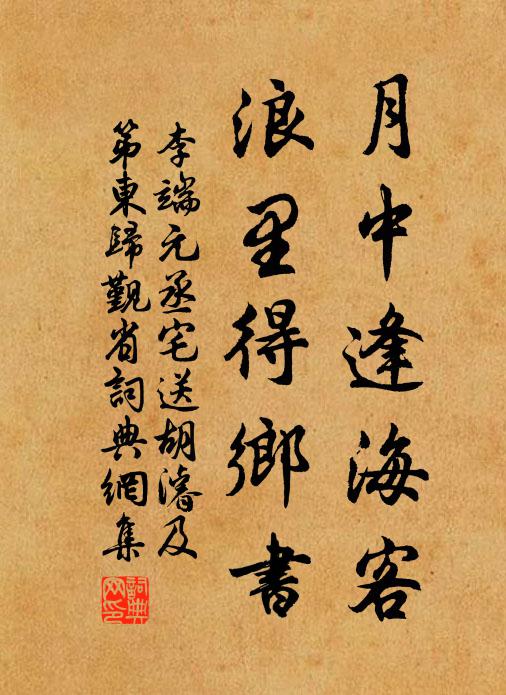 月中逢海客
浪里得鄉書
李端元丞宅送胡濬及
第東歸觀省詞典網集
詞典網印